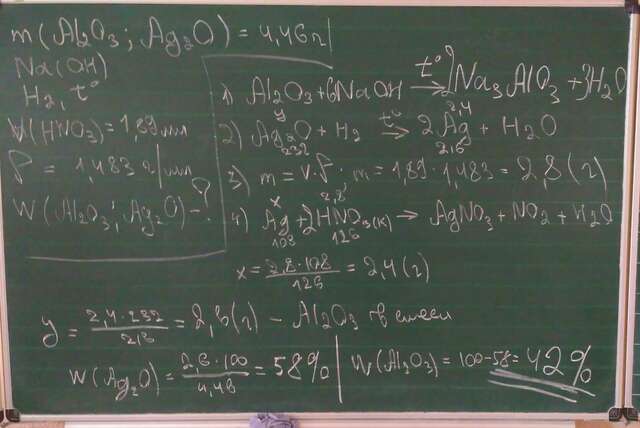 m(Al₂O₃; Ag₂O) = 4,46 г
Na(OH)
H₂, t°
V(HNO₃) = 1,89 мл
ρ = 1,483 г/мл
W(Al₂O₃; Ag₂O) - ?
1) Al₂O₃ + 6NaOH →t° 2Na₃AlO₃ + 3H₂O
y 2,4
2) Ag₂O + H₂ →t° 2Ag + H₂O
232 216
3) m = V·ρ · m = 1,89 · 1,483 = 2,8 (г)
x 2,8
4) Ag + 2HNO₃(к) → AgNO₃ + NO₂ + H₂O
108 126
x = 2,8·108 / 126 = 2,4 (г)
y = 2,4·232 / 216 = 2,6 (г) - Al₂O₃ в смеси
W(Ag₂O) = 2,6·100 / 4,46 = 58%
W(Al₂O₃) = 100-58 = 42%